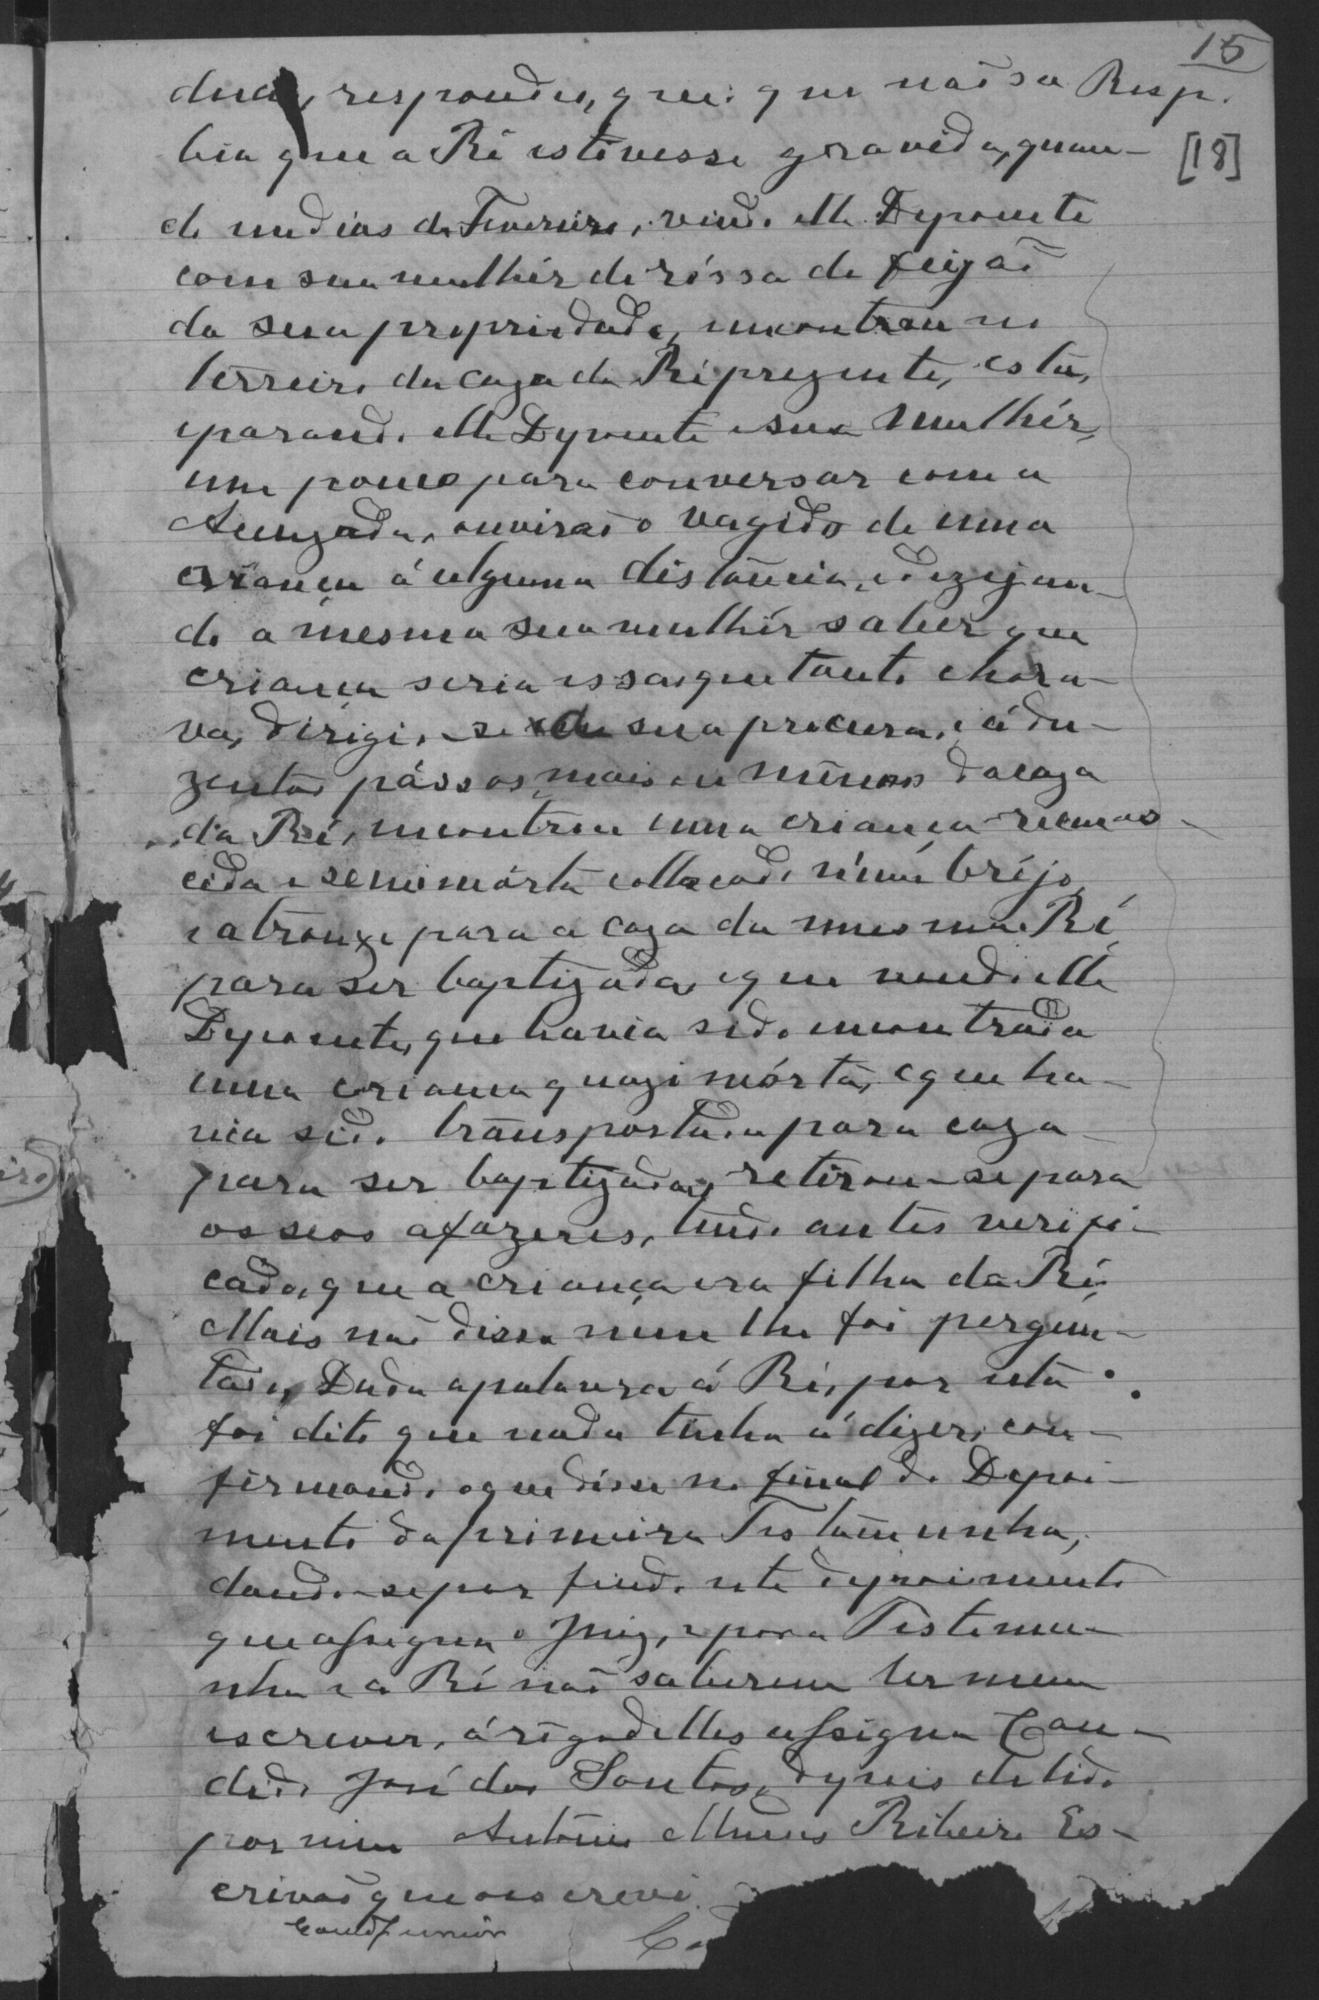 15
dua, respondeo, que: que não sa Resp.
bia que a Ré estivesse gravida, quan- [18]
do em dias de Fevereiro, vindo elle Depoente
com sua mulhér da róssa de feijaõ
da sua propriedade, encontrou no
terreiro da caza da Ré prezente, esta,
parando elle Depoente e sua mulhér,
um pouco para conversar com a
Accuzada, ouviraõ o vagido de uma
criança á alguma distância, e dezejan-
do a mesma sua mulhér saber que
criança seria essa, que tanto chora-
va, dirigio-se sua procura, e á du-
zentos pássos, mais ou menos da caza
da Ré, encontrou uma criança recennas-
cida e semimórta collocada n'um bréjo,
e a trouxe para a caza da mesma Ré
para ser baptizada, e que vendo elle
Depoente, que havia sido encontrada
uma criança quazi mórta, e que ha-
via sido transportada para caza
para ser baptizada, retirou-se para
os seos afazeres, tendo antes verifi-
cado, que a criança era filha da Ré.
Mais naõ disse nem lhe foi pergun-
tado, Dada a palavra á Ré, por esta
foi dito que nada tinha á dizer, con-
firmando o que disse no final do Depoi-
mento da primeira Testamunha,
dando-se por findo este depoimento
que assigna o Juiz, e por a Testemu-
nha e a Ré naõ saberem ler nem
escrever, á rogo delles assigna Can-
dido José dos Santos, depois de lido
por mim Antônio Nunes Ribeiro Es-
crivaõ que o escrevi.